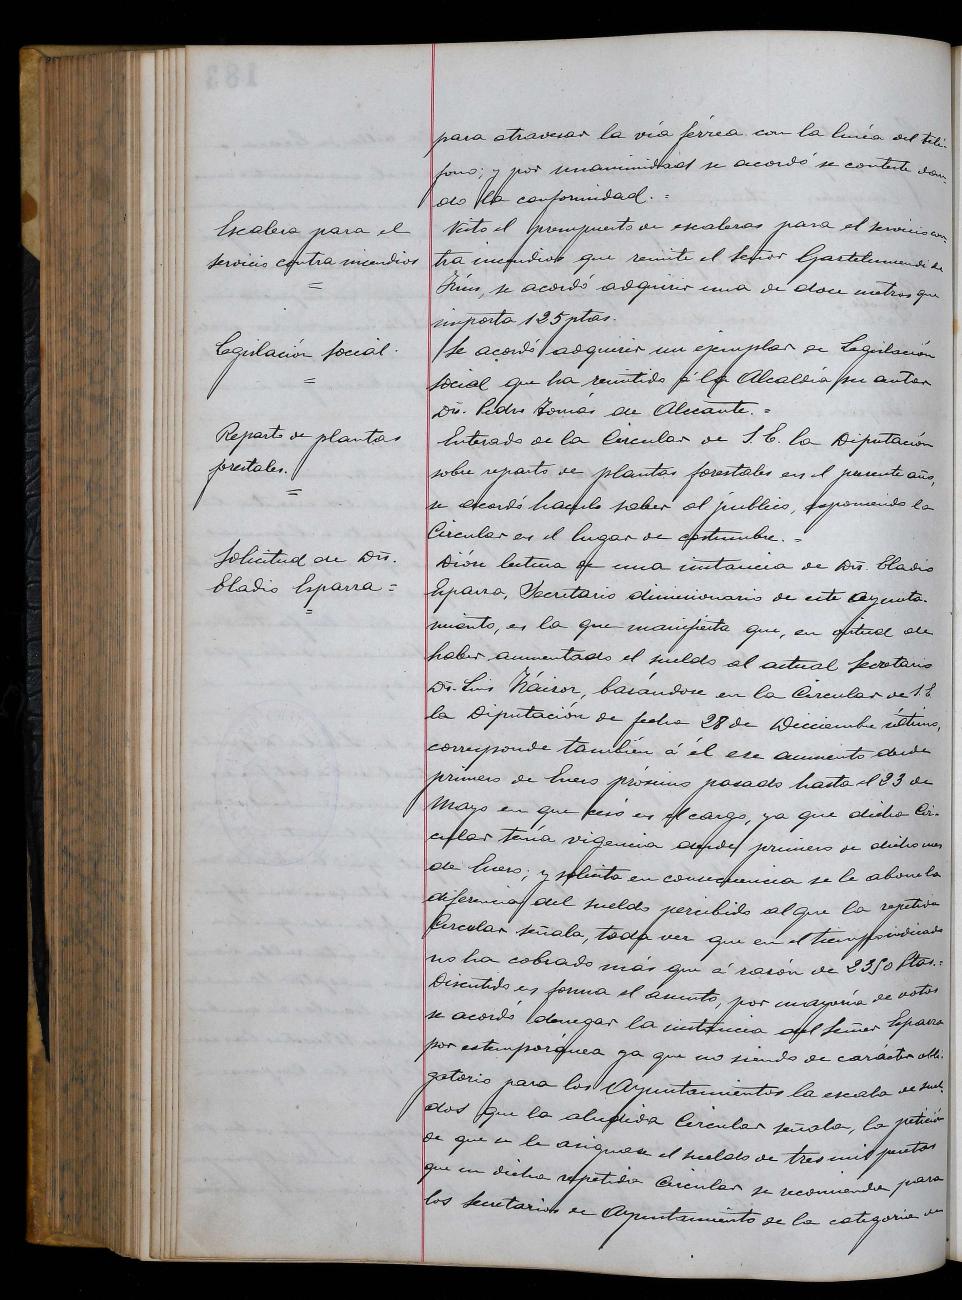 para atravesar la vía férrea con la linea del telé-
fono; y por unanimidad se acordó se conteste dan-
do la conformidad.=
Escalera para el
servicio contra incendios
=
Visto el presupuesto de escaleras para el servicio con-
tra incendios que remite el señor Gastelumendi de
Irún, se acordó adquirir una de doce metros que
importa 125 ptas.
Legislación social.
=
Se acordó adquirir un ejemplar de Legislación
social que ha remitido á la Alcaldía su autor
Dn. Pedro Tomás de Alicante.=
Reparto de plantas
forestales.
=
Enterado de la Circular de S.E. la Diputación
sobre reparto de plantas forestales en el presente año,
se acordó hacerlo saber al público, exponiendo la
Circular en el lugar de costumbre.=
Solicitud de Dn.
Eladio Esparza=
=
Dióse lectura de una instancia de Dn. Eladio
Esparza, Secretario dimisionario de este Ayunta-
miento, en la que manifiesta que, en virtud de
haber aumentado el sueldo al actual Secretario
Dn. Luis basándose en la Circular de S.E.
la Diputación de fecha 28 de Diciembre último,
corresponde también á él ese aumento desde
primero de Enero próximo pasado hasta el 23 de
Mayo en que cesó en el cargo, ya que dicha Cir-
cular tenía vigencia desde primero de dicho mes
de Enero; y solicita en consecuencia se le abone la
diferencia del sueldo percibido al que la repetida
Circular señala, toda vez que en el tiempo indicado
no ha cobrado más que á razón de 2350 Ptas.=
Discutido en forma el asunto, por mayoría de votos
se acordó denegar la instancia del señor Esparza
por estemporanea ya que no siendo de carácter obli-
gatorio para los Ayuntamientos la escala de suel-
dos que la aludida Circular señala, la petición
de que se le asignase el sueldo de tres mil pesetas
que en dicha repetida Circular se recomienda para
los Secretarios de Ayuntamiento de la categoria de